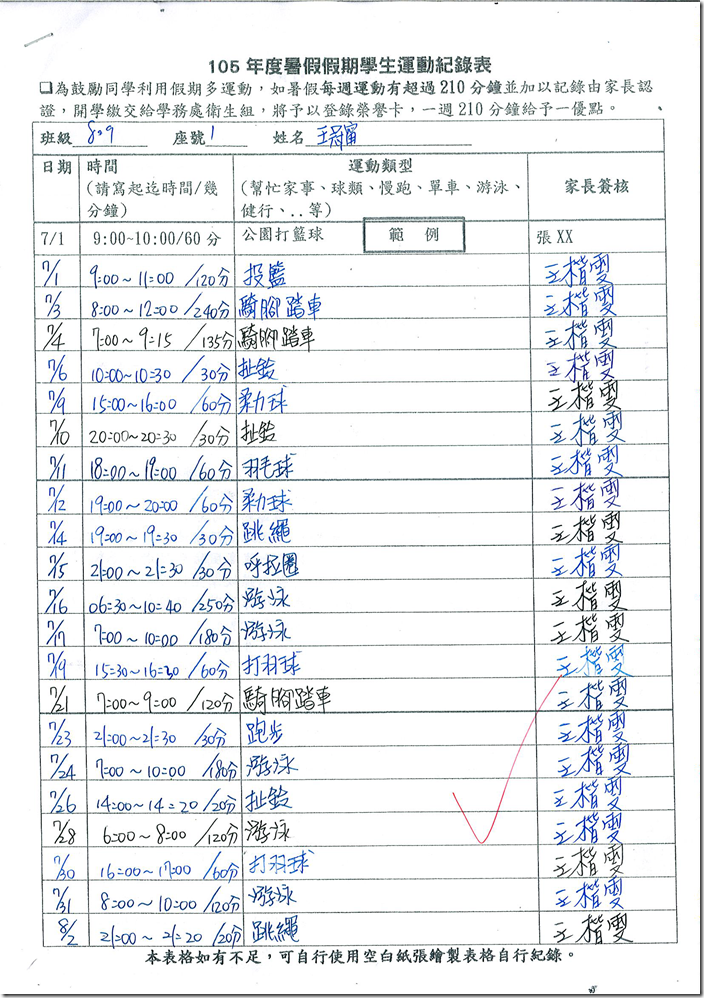 105 年度暑假假期學生運動紀錄表
❏為鼓勵同學利用假期多運動，如暑假每週運動有超過210分鐘並加以記錄由家長認
證，開學繳交給學務處衛生組，將予以登錄榮譽卡，一週 210 分鐘給予一優點。
班級 809 座號 1 姓名 王
日期 時間 運動類型 家長簽核
(請寫起迄時間/幾 (幫忙家事、球類、慢跑、單車、游泳、
分鐘) 健行、..等)
7/1 9:00~10:00/60 分 公園打籃球 範 例 張 XX
7/1 9:00~11:00 /120分 投籃 王楷雯
7/3 8:00~12:00/240分 騎腳踏車 王楷雯
7/4 7:00~9:15 /135分 騎腳踏車 王楷雯
7/6 10:00~10:30 /30分 扯鈴 王楷雯
7/9 15:00~16:00 /60分 柔力球 王楷雯
7/10 20:00~20:30 /30分 扯鈴 王楷雯
7/11 18:00~19:00 /60分 羽毛球 王楷雯
7/12 19:00~20:00 /60分 柔力球 王楷雯
7/14 19:00~19:30 /30分 跳繩 王楷雯
7/15 21:00~21:30 /30分 呼拉圈 王楷雯
7/16 06:30~10:40 /250分 游泳 王楷雯
7/17 7:00~10:00 /180分 游泳 王楷雯
7/19 15:30~16:30 /60分 打羽球 王楷雯
7/21 7:00~9:00 /120分 騎腳踏車 王楷雯
7/23 21:00~21:30 /30分 跑步 王楷雯
7/24 7:00~10:00 /180分 游泳 王楷雯
7/26 14:00~14:20 /20分 扯鈴 王楷雯
7/28 6:00~8:00 /120分 游泳 王楷雯
7/30 16:00~17:00 /60分 打羽球 王楷雯
7/31 8:00~10:00 /120分 游泳 王楷雯
8/2 21:00~21:20 /20分 跳繩 王楷雯
本表格如有不足，可自行使用空白紙張繪製表格自行紀錄。